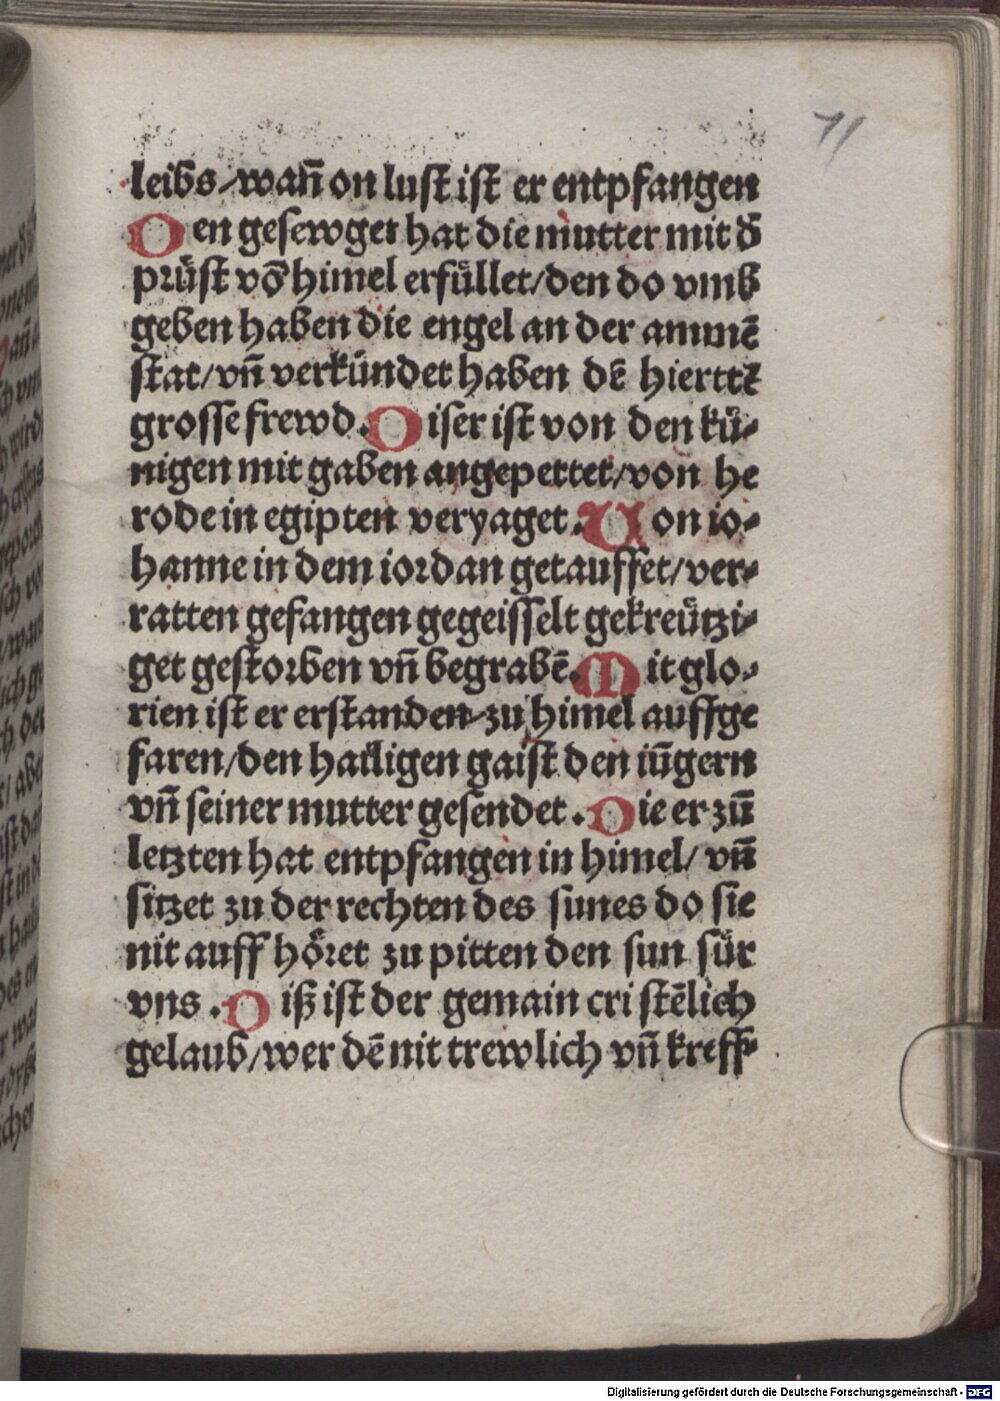 71
leibs/wañ on lust ist er entpfangen
Den gesewget hat die mutter mit d̄
prüst võ himel erfüllet/den do vmb
geben haben die engel an der ammē
stat/vñ verkündet haben dē hierttē
grosse frewd. Diser ist von den kü⸗
nigen mit gaben angepettet/von he
rode in egipten veryaget. Von io⸗
hanne in dem iordan getauffet/ver⸗
ratten gefangen gegeisselt gekreützi⸗
get gestorben vñ begrabē. Mit glo⸗
rien ist er erstanden/zu himel auffge
faren/den hailigen gaist den iūgern
vñ seiner mutter gesendet. Die er zū
letzten hat entpfangen in himel/ vñ
sitzet zu der rechten des sunes do sie
nit auff höret zu pitten den sun für
vns. Diß ist der gemain cristēlich
gelaub/wer dē nit trewlich vñ kreff⸗
Digitalisierung gefördert durch die Deutsche Forschungsgemeinschaft - DFG